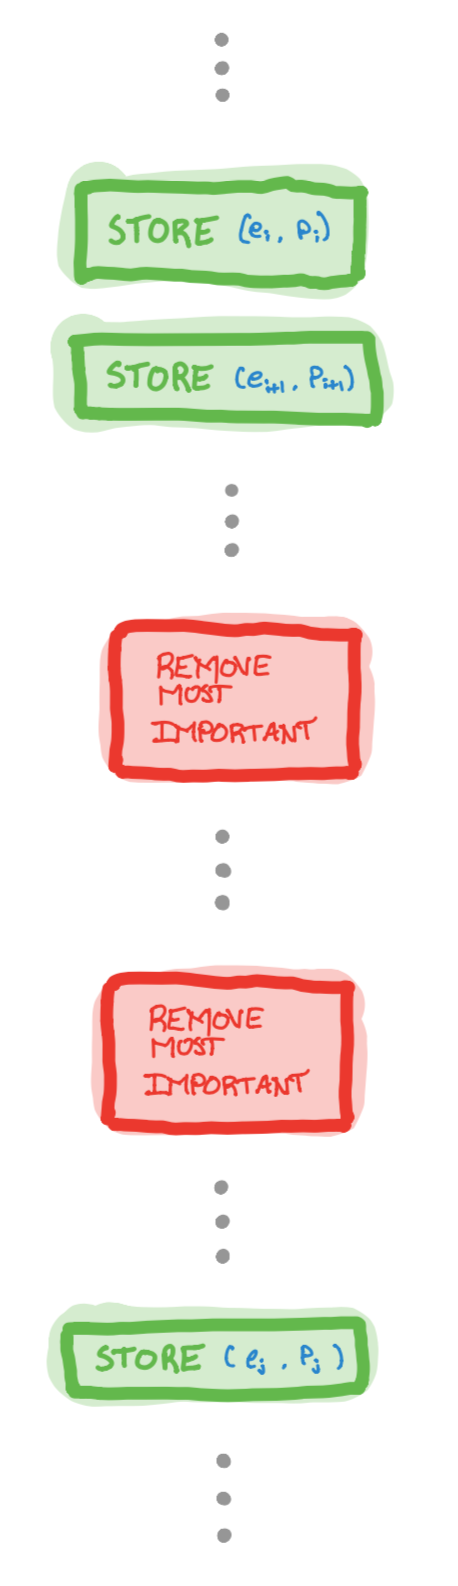 STORE (eᵢ, Pᵢ)
STORE (eᵢ₊₁, Pᵢ₊₁)
REMOVE
MOST
IMPORTANT
REMOVE
MOST
IMPORTANT
STORE (eⱼ, Pⱼ)